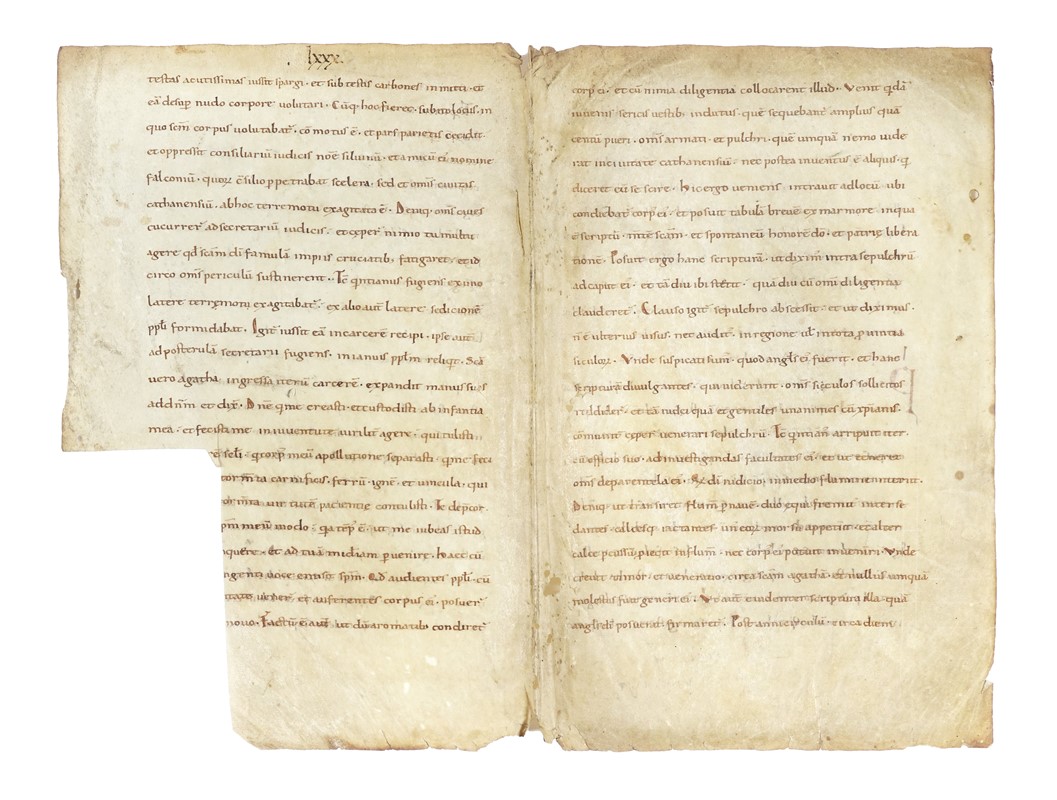 lxxx.
testas acutissimas iussit spargi · et sub testis carbones inmitti · et
eā desup nudo corpore volutari · Cūq · hoc fieret · subito locus · in
quo scm corpus volutabat · cōmotus ē · et pars parietis cecidit ·
et oppressit consiliariū iudicis nōe silvinū · et amicū ei nomine
falconiū · quoꝝ ɔ̄silio ppetrabat scelera · sed et omīs civitas
cathanensiū · ab hoc terremotu exagitata ē · Deniq · omīs cives
cucurrer ad secretariū iudicis · et cēper nimio tumultu
agere qd scam dī famulā impiis cruciatib · fatigaret · et id
circo omīs periculū sustinerent · Tc qntianus fugiens ex uno
latere terręmotu exagitabat · ex alio aut latere sedicionē
ppli formidabat · Igit iussit eā in carcerē recipi · ipse aut
ad posterulā secretarii fugiens · in ianuis pplm reliqt · Sca
vero agatha · ingressa iterū carcerē · expandit manus suas
ad dnm et dix · Dne q me creasti · et custodisti ab infantia
mea · et fecisti me in iuventute viriliť agere · qui tulisti
seli · q corp meū a pollutione separasti · q me feci
tormta carnificis · ferrū · ignē · et vincula · qui
tormta virtutē pacientię contulisti · Te depcor
spm meū modo · qa tep ē · ut me iubeas istud
nquere · et ad tuā mīdiam pvenire · Haec cū
ingenti voce emisit spm · Qd audientes ppli · cū
et auferentes corpus ei · posuer
novo · Factū ē aut ut dū aromatib · condiret
corp ei · et cū nimia diligentia collocarent illud · Venit qdā
iuvenis sericis vestib · indutus · quē sequebant amplius quā
centū pueri · omīs armati · et pulchri · quē umquā nemo vide
rat in civitate cathanensiū · nec postea inventus ē aliquis · q
diceret eū se scire · Hic ergo veniens · intravit ad locū ubi
condiebat corp ei · et posuit tabulā brevē ex marmore in qua
ē scriptū · mtē scam · et spontaneū honorē dō · et patrię libera
tionē · Posuit ergo hanc scripturā · ut diximˀ intra sepulchrū
ad caput ei · et tā diu ibi stetit · quā diu cū omī diligentia
clauderet · Clauso igit sepulchro abscessit · et ut diximus ·
n ē ulterius visus · nec audit · in regione ul in tota pvintia
siculoꝝ · Unde suspicati sunt · quod angls ei fuerit · et hanc
scripturā divulgantes · qui viderunt · omīs sięculos sollicitos
reddider · et tā iudei quā et gentiles unanimes cū xpianis ·
cōmunit cęper venerari sepulchrū · Tc qntian arripuit iter ·
cū officio suo · ad investigandas facultates ei · et ut teneret
omīs de parentela ei · dī iudicio in medio fluminę interiit ·
Deniq · ut transiret flum p navē · duo equi fremitū inter se
dantes · calcesq iactantes · un eoꝝ morsu appetiit · et alter
calce pcussū pręcit in flum · nec corp ei potuit inveniri · Unde
crevit timor · et veneratio · circa scam agathā · et nullus umquā
molestus fuit generi ei · Ut aut evidenter scriptura illa · quā
angls dī posuerat · firmaret · Post anni circulū · circa diem